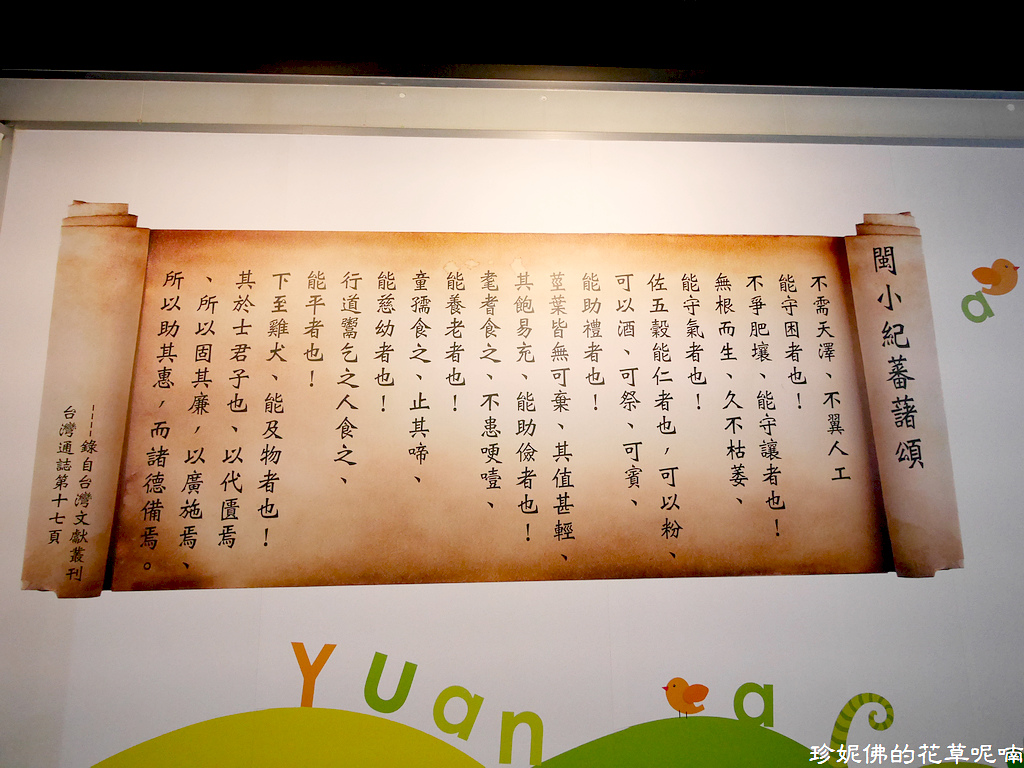 閩小紀蕃藷頌
不需天澤、不翼人工
能守困者也！
不爭肥壤、能守讓者也！
無根而生、久不枯萎、
能守氣者也！
佐五穀能仁者也，可以粉、
可以酒、可祭、可賓、
能助禮者也！
莖葉皆無可棄、其值甚輕、
其飽易充、能助儉者也！
耄耆食之、不患哽噎、
能養老者也！
童孺食之、止其啼、
能慈幼者也！
行道鬻乞之人食之、
能平者也！
下至雞犬、能及物者也！
其於士君子也、以代匱焉
、所以固其廉，以廣施焉、
所以助其惠，而諸德備焉。
----錄自台灣文獻叢刊
台灣通誌第十七頁
a
Yuan a
珍妮佛的花草呢喃